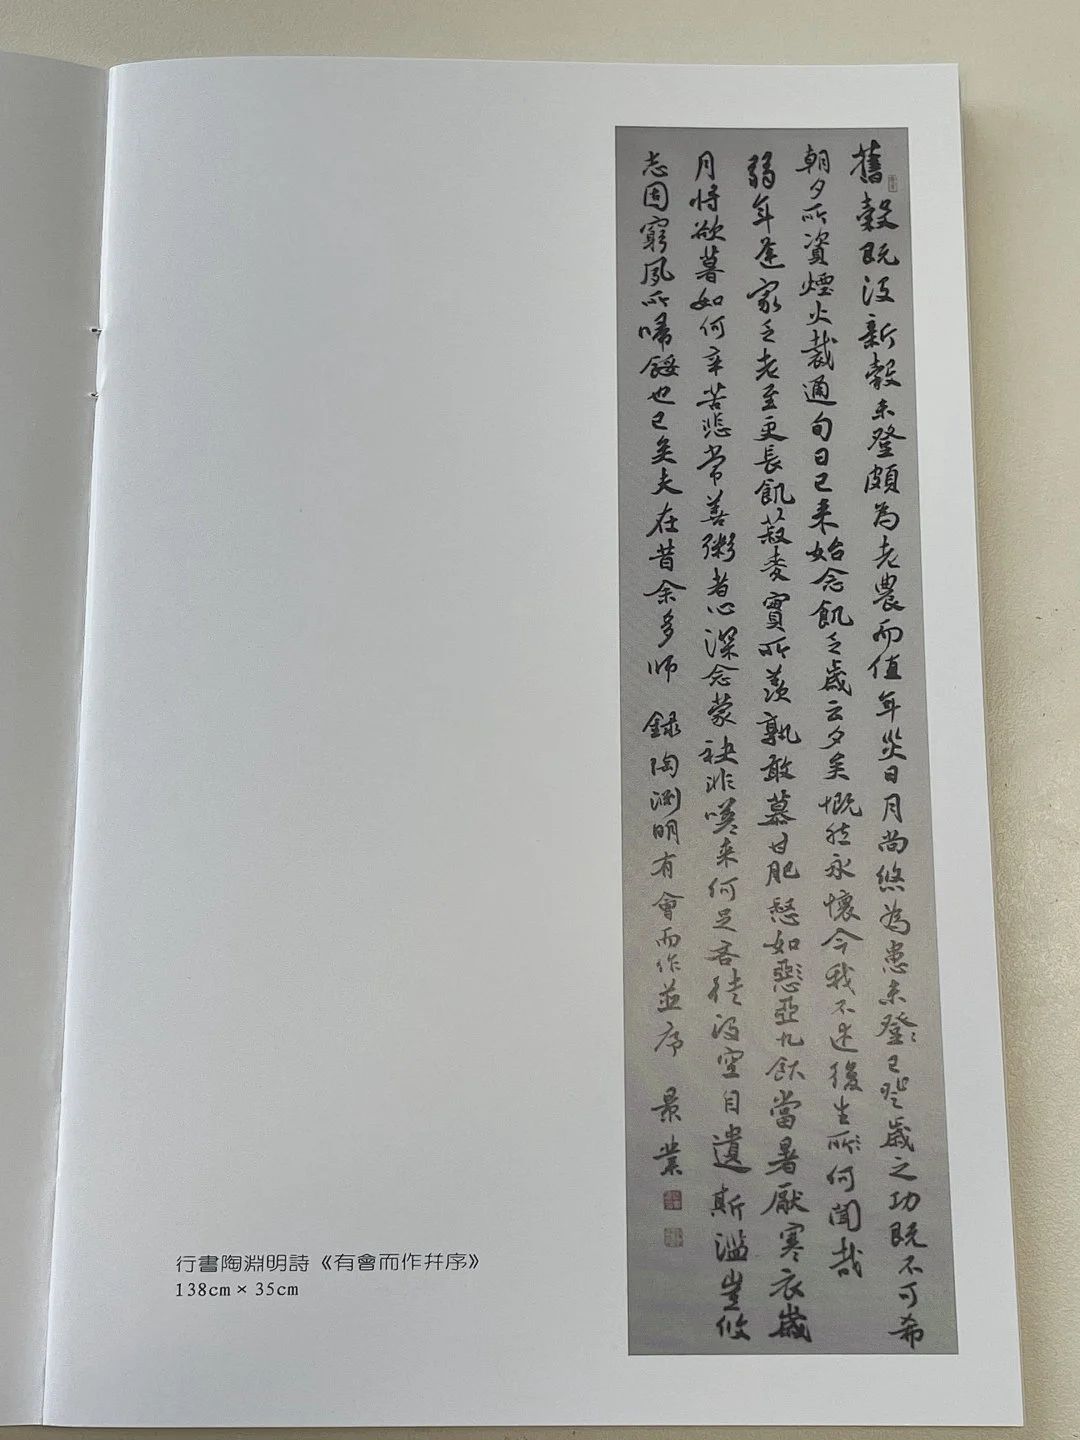 舊穀既沒新穀未登頗為老農而值年災日月尚悠為患未登〻已㞢歲之功既不可希
朝夕所資煙火裁通旬日已来始念飢乏歲云夕矣慨然永懷今我不述後生所〻何聞哉
弱年逢家乏老至更長飢菽麥實所羨孰敢慕甘肥惄如惡〻亞九飲當暑厭寒衣歲
月将欲暮如何辛苦悲常善粥者心深念蒙袂非嗟来何足吝徒沒空自遺斯濫豈攸
志固窮夙所歸餒也已矣夫在昔余多師 録陶渊明有會而作並序 景業
行書陶淵明詩《有會而作幷序》
138cm × 35cm